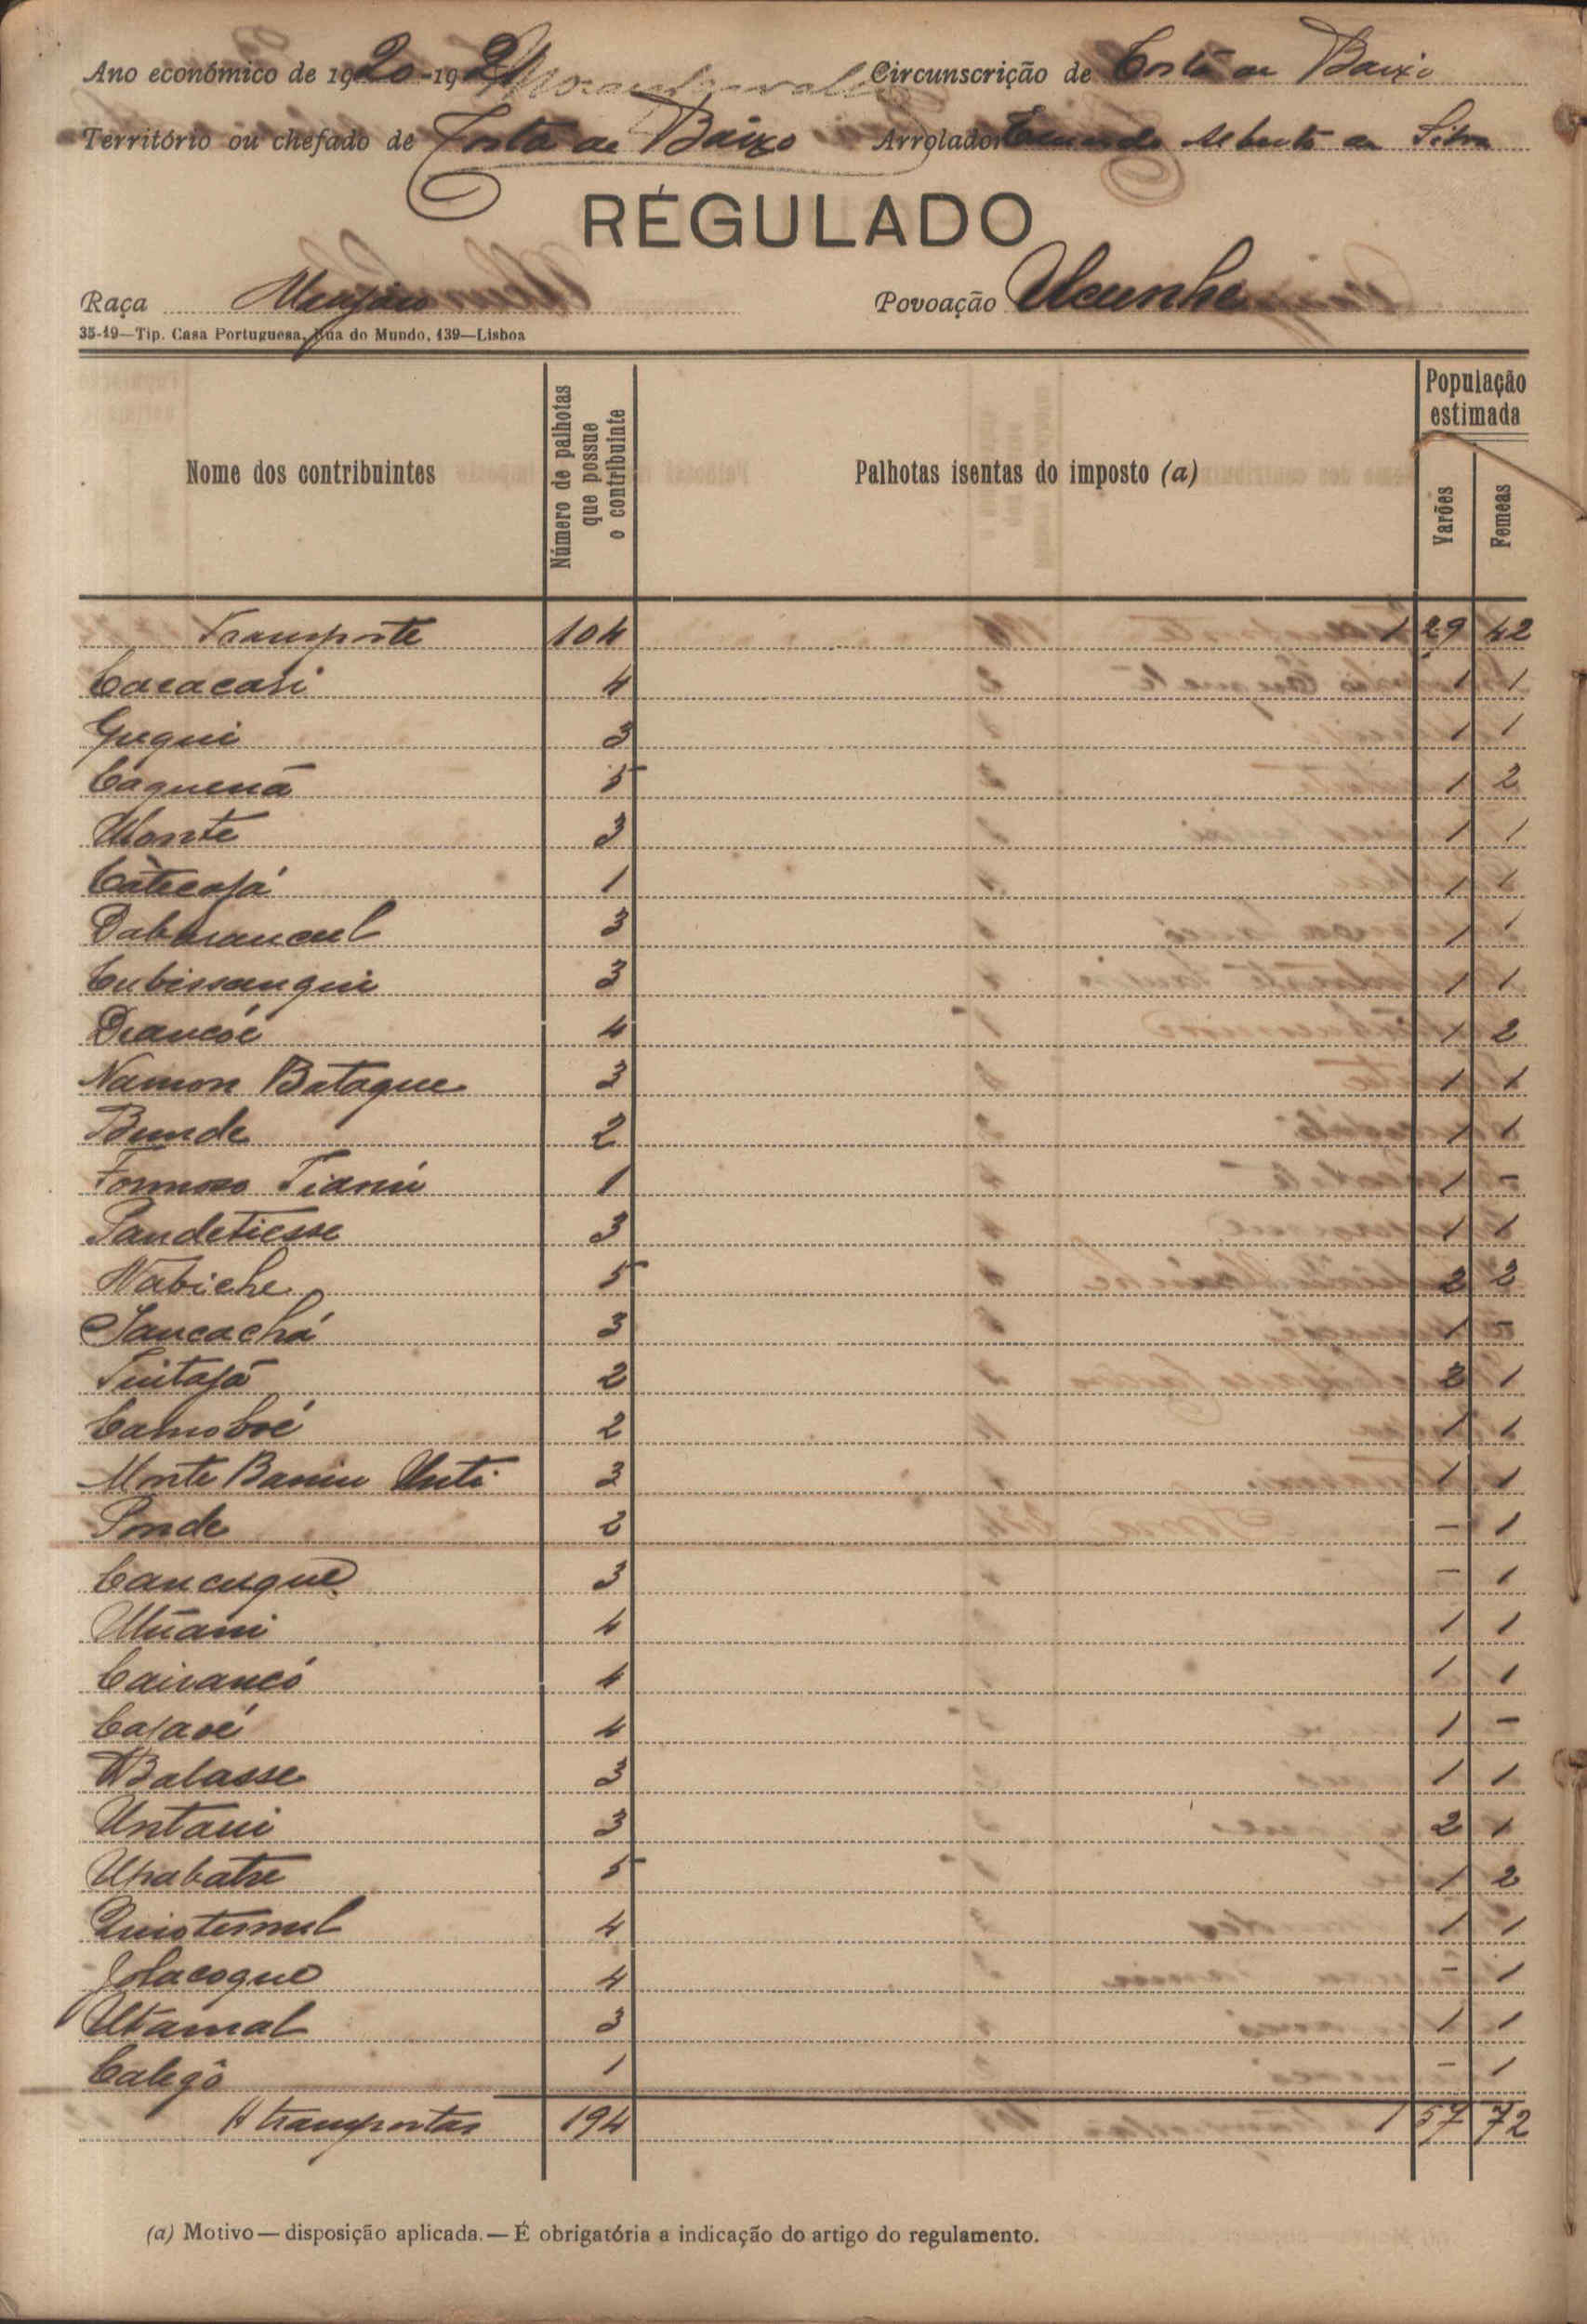 Ano económico de 1920-1921 Circunscrição de Costa de Baixo
Território ou chefado de Costa de Baixo Arrolador Alberto da Silva
RÉGULADO
Raça Manjaco Povoação Ucunhe
35-19—Tip. Casa Portuguesa, Rua do Mundo, 139—Lisboa
Nome dos contribuintes Número de palhotas que possue o contribuinte Palhotas isentas do imposto (a) População estimada Varões Femeas
Transporte 104 1 29 42
Cacacasi 4 1 1
Guqui 3 1 1
Caquená 5 1 2
Monte 3 1 1
Càtecajá 1 1 1
Dabanancul 3 1 1
Cubissangui 3 1 1
Diancóe 4 1 2
Namon Bataque 3 1 1
Bunde 2 1 1
Formoso Tianú 1 1 -
Pandetiesse 3 1 1
Nabiche 5 2 2
Jancachá 3 1 -
Tuitajá 2 2 1
Camobré 2 1 1
Monte Baniu Unti 3 1 1
Ponde 2 - 1
Cancuque 3 - 1
Utuani 4 1 1
Cairancó 4 1 1
Cajavé 4 1 -
Balasse 3 1 1
Untaui 3 2 1
Upabatre 5 1 2
Quistumul 4 1 1
Jolacoque 4 - 1
Utamal 3 1 1
Calegô 1 - 1
A transportar 194 1 57 72
(a) Motivo — disposição aplicada. — É obrigatória a indicação do artigo do regulamento.